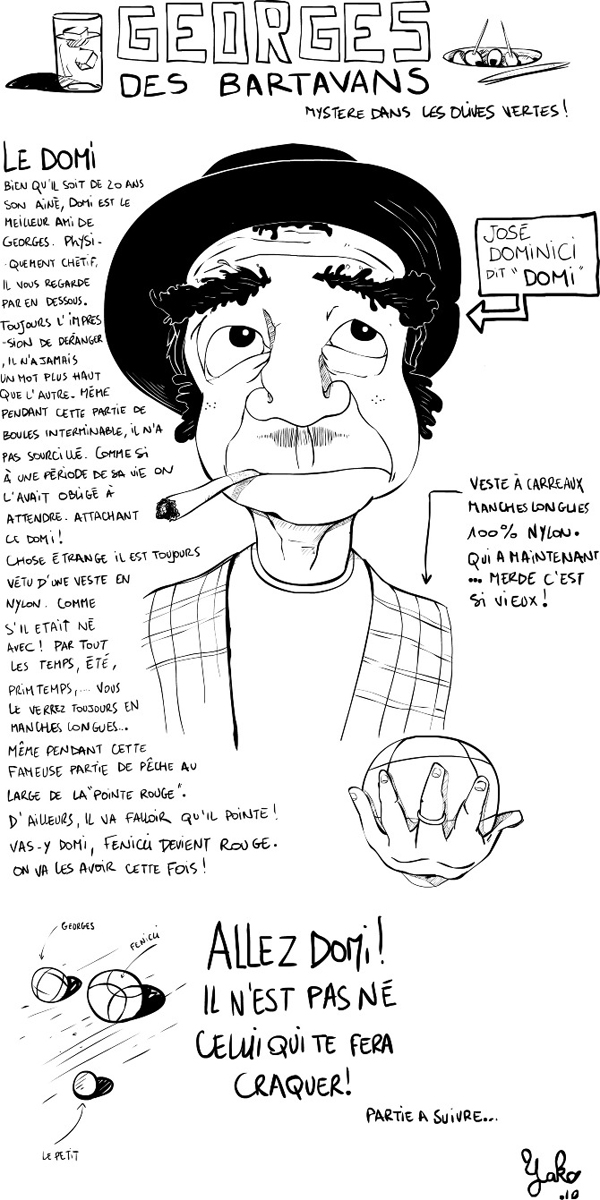 GEORGES
DES BARTAVANS
MYSTERE DANS LES OLIVES VERTES!
LE DOMI
BIEN QU'IL SOIT DE 20 ANS
SON AINÉ, DOMI EST LE
MEILLEUR AMI DE
GEORGES. PHYSI-
-QUEMENT CHÉTIF,
IL VOUS REGARDE
PAR EN DESSOUS.
TOUJOURS L'IMPRES
-SION DE DERANGER
, IL N'A JAMAIS
UN MOT PLUS HAUT
QUE L'AUTRE. MÊME
PENDANT CETTE PARTIE DE
BOULES INTERMINABLE, IL N'A
PAS SOURCILLÉ. COMME SI
À UNE PÉRIODE DE SA VIE ON
L'AVAIT OBLIGÉ À
ATTENDRE. ATTACHANT
CE DOMI!
CHOSE ETRANGE IL EST TOUJOURS
VÊTU D'UNE VESTE EN
NYLON. COMME
S'IL ETAIT NÉ
AVEC! PAR TOUT
LES TEMPS, ÉTÉ,
PRIMTEMPS,.... VOUS
LE VERREZ TOUJOURS EN
MANCHES LONGUES...
MÊME PENDANT CETTE
FAMEUSE PARTIE DE PÊCHE AU
LARGE DE LA "POINTE ROUGE".
D'AILLEURS, IL VA FALLOIR QU'IL POINTE!
VAS-Y DOMI, FENICCI DEVIENT ROUGE.
ON VA LES AVOIR CETTE FOIS!
JOSÉ
DOMINICI
DIT "DOMI"
VESTE À CARREAUX
MANCHES LONGUES
100% NYLON.
QUI A MAINTENANT
... MERDE C'EST
SI VIEUX!
GEORGES
FENICCI
LE PETIT
ALLEZ DOMI!
IL N'EST PAS NÉ
CELUI QUI TE FERA
CRAQUER!
PARTIE A SUIVRE...
Yako
.10